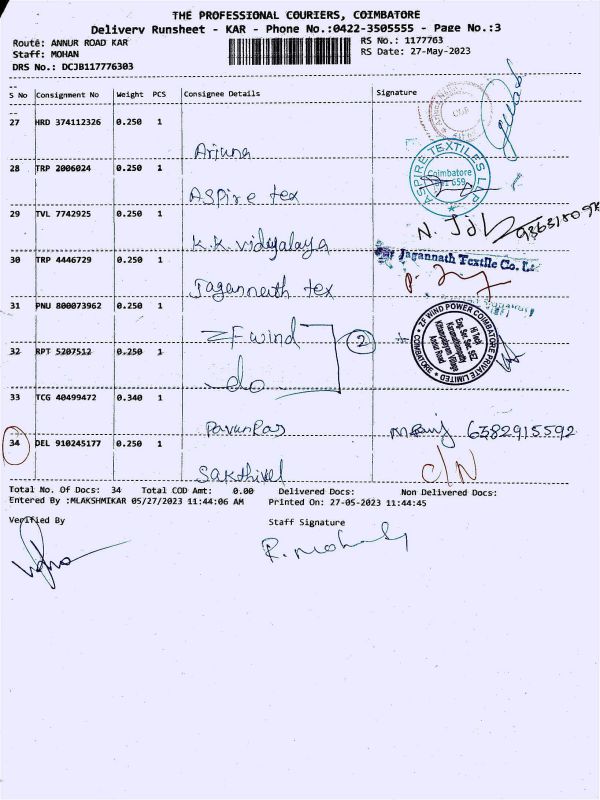 THE PROFESSIONAL COURIERS, COIMBATORE
Delivery Runsheet - KAR - Phone No.:0422-3505555 - Page No.:3
Route: ANNUR ROAD KAR
RS No.: 1177763
Staff: MOHAN
RS Date: 27-May-2023
DRS No.: DCJB117776303
S No Consignment No Weight PCS Consignee Details Signature
27 HRD 374112326 0.250 1
Arjuna
28 TRP 2006024 0.250 1
Aspire tex
ASPIRE TEXTILES LLP
Coimbatore
641 659
29 TVL 7742925 0.250 1
K.K. vidyalaya
30 TRP 4446729 0.250 1
Jagannath tex
For Jagannath Textile Co. Lt
31 PNU 800073962 0.250 1
ZF wind
2
ZF WIND POWER COIMBATORE PRIVATE LIMITED
COIMBATORE
32 RPT 5207512 0.250 1
do
33 TCG 40499472 0.340 1
6382915592
34 DEL 910245177 0.250 1
Sakthivel
C/N
Total No. Of Docs: 34 Total COD Amt: 0.00 Delivered Docs: Non Delivered Docs:
Entered By :MLAKSHMIKAR 05/27/2023 11:44:06 AM Printed On: 27-05-2023 11:44:45
Verified By Staff Signature
R. Mohan